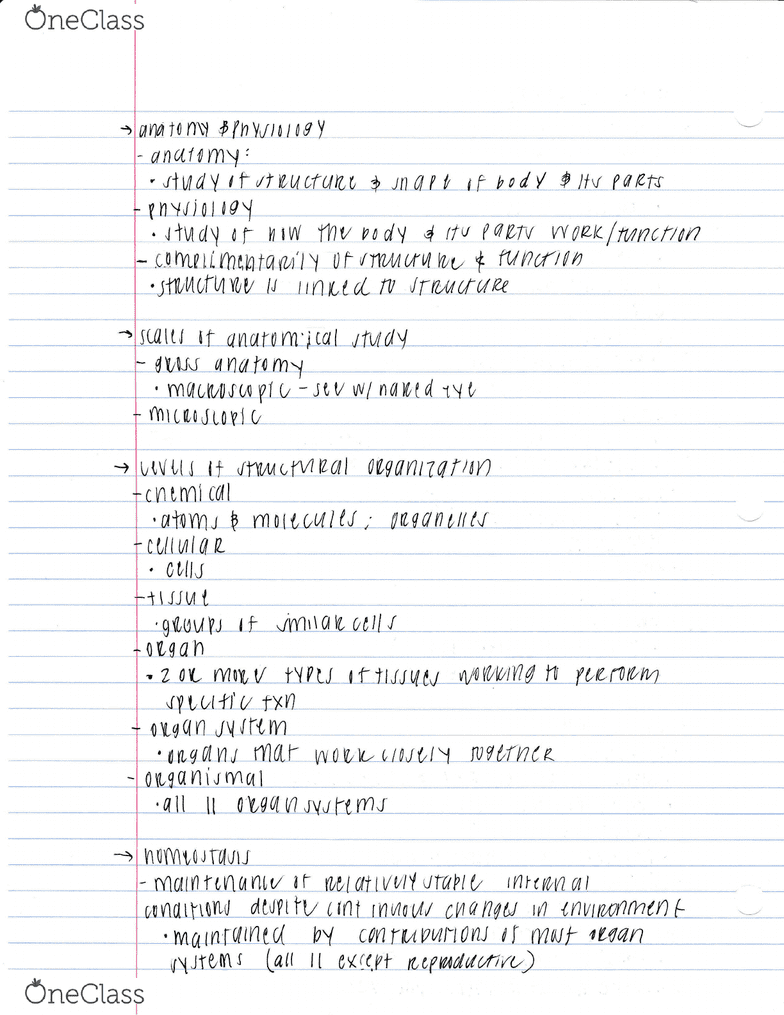 OneClass
→ anatomy & physiology
- anatomy:
• study of structure & shape of body & its parts
- physiology
• study of how the body & its parts work/function
- complimentarily of structure & function
• structure is linked to structure
→ scales of anatomical study
- gross anatomy
• macroscopic - see w/ naked eye
- microscopic
→ levels of structural organization
- chemical
• atoms & molecules; organelles
- cellular
• cells
- tissue
• groups of similar cells
- organ
• 2 or more types of tissues working to perform
specific fxn
- organ system
• organs that work closely together
- organismal
• all 11 organ systems
→ homeostasis
- maintenance of relatively stable internal
conditions despite continuous changes in environment
• maintained by contributions of most organ
systems (all 11 except reproductive)
OneClass